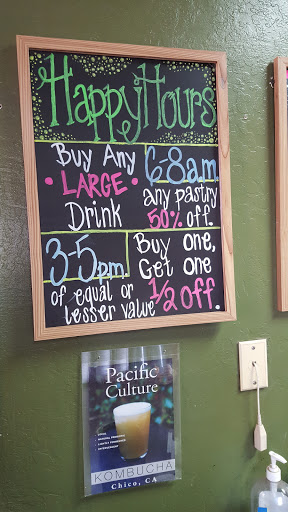 Happy Hours
Buy Any
• LARGE •
Drink
6-8a.m.
any pastry
50% off.
3-5p.m.
Buy one,
Get one
of equal or
lesser value
1/2 off.
Pacific
Culture
KOMBUCHA
Chico, CA